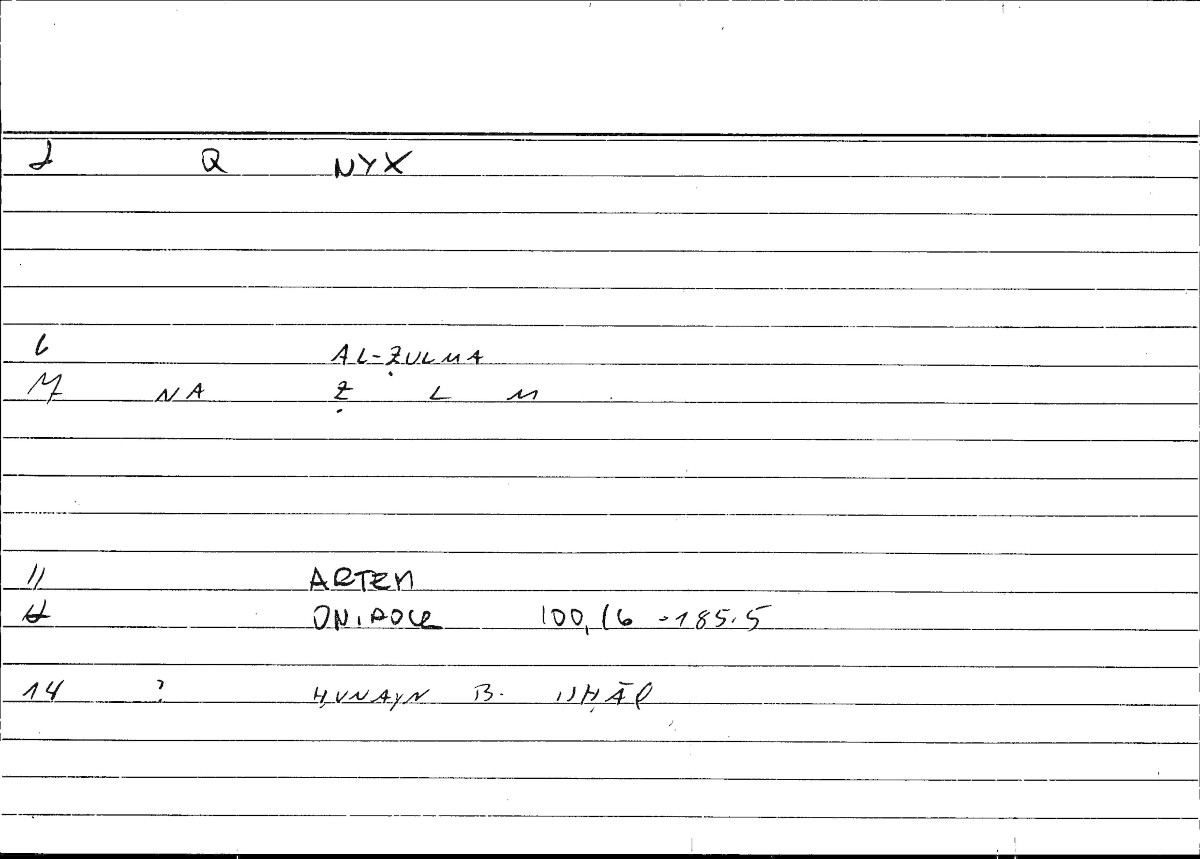 2 Q NYX
6 AL-ẒULMA
7 NA Ẓ L M
11 ARTEM
ONIROCR 100,16 - 185.5
14 ? ḤUNAYN B. ISḤĀQ